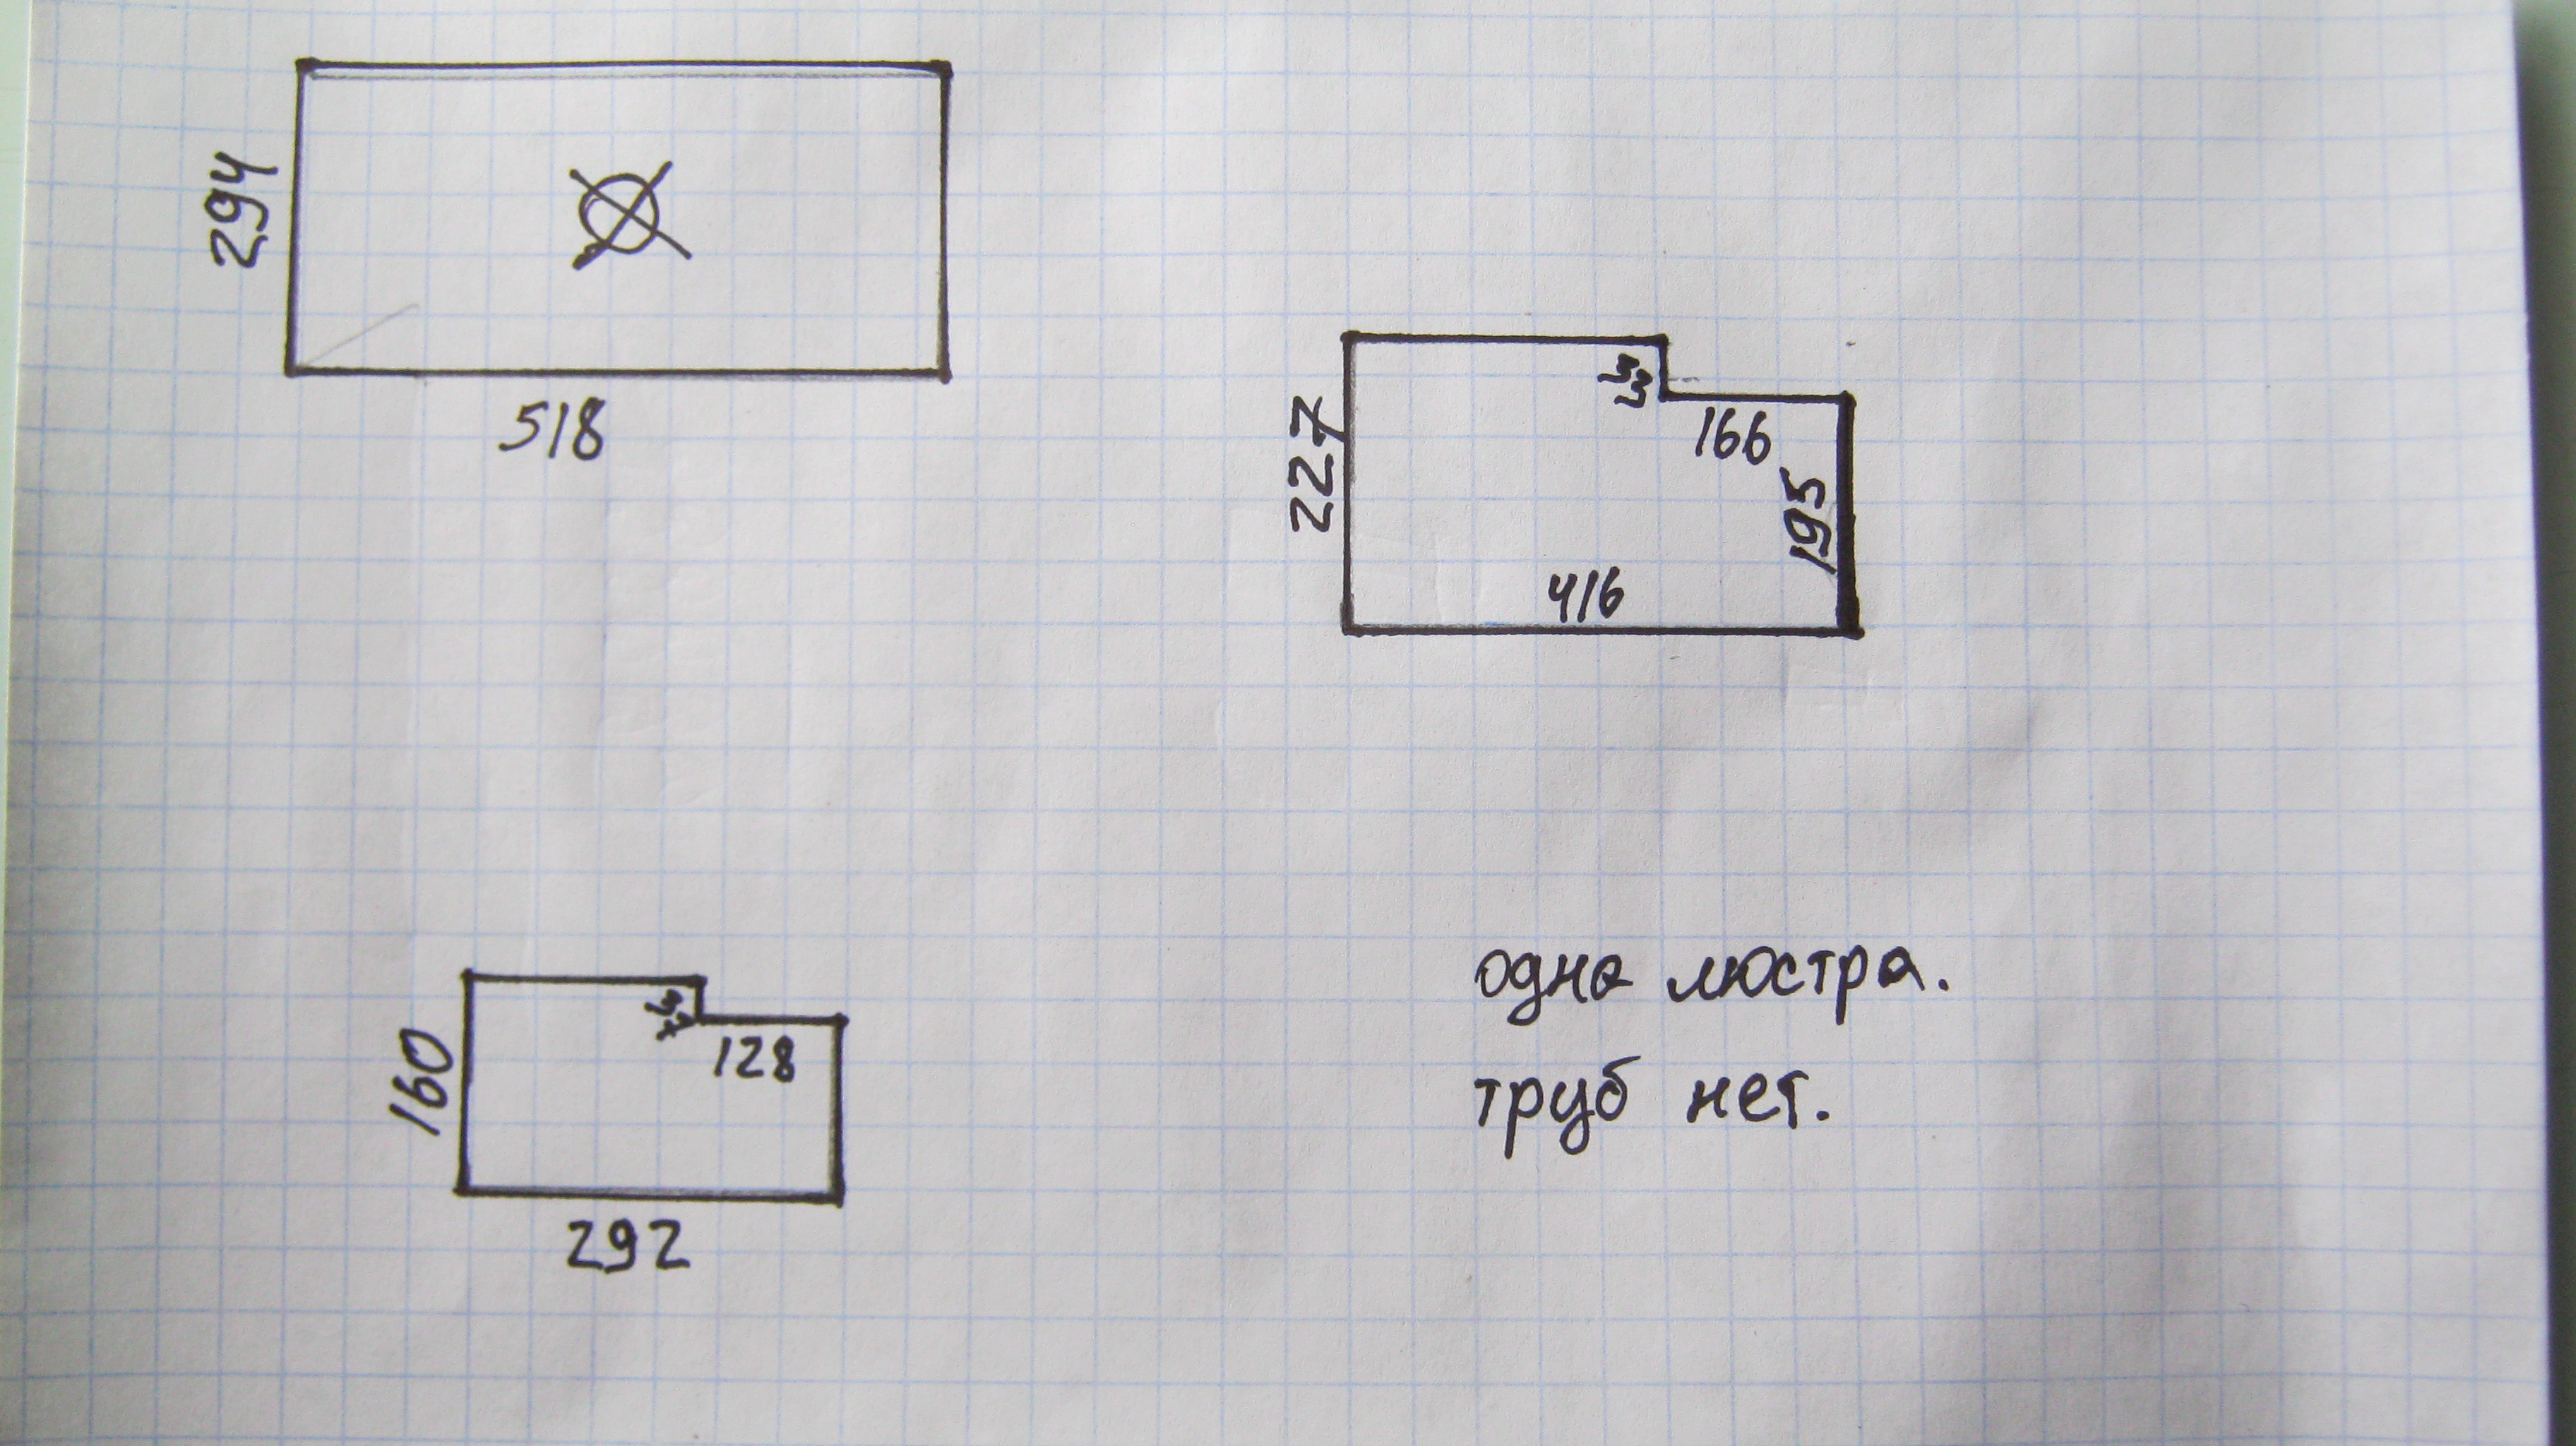 294
518
227
33
166
195
416
160
128
292
одна люстра.
труб нет.